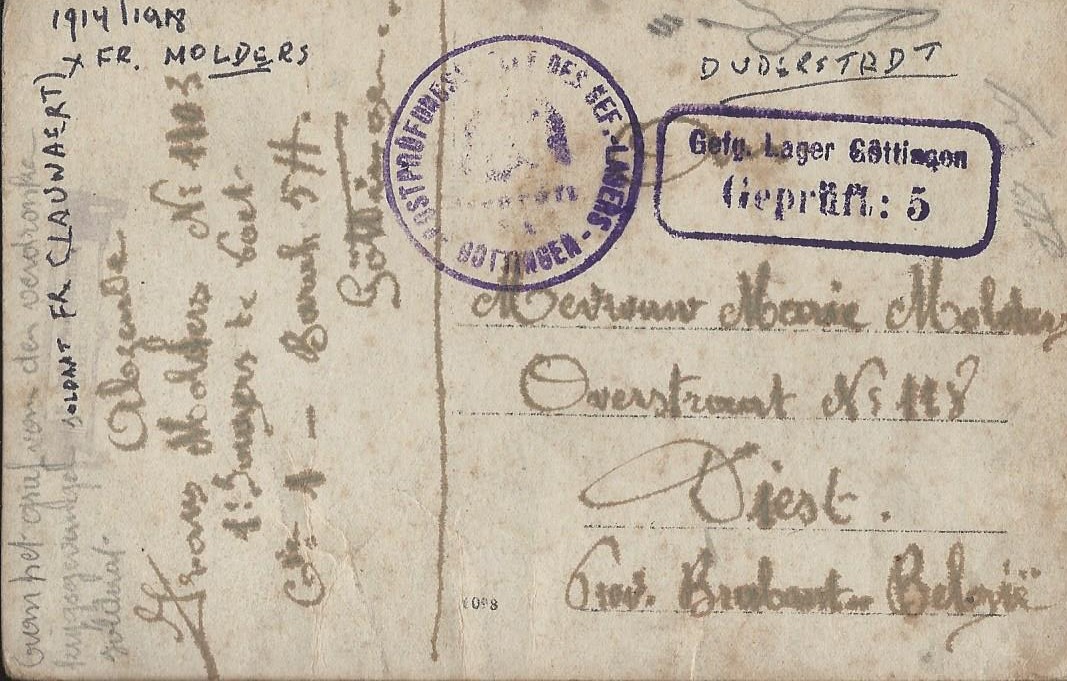 1914/1918
x FR. MOLDERS
SOLDAAT FR CLAUWAERT)
van het graf van den verdronken
krijgsgevangen
soldaat.
Absende
Frans Molders Nº 1103
Cie 1 - Barak 5H.
Göttingen.
POSTPRÜFUNGS DES GEF.-LAGERS
GÖTTINGEN
DUDERSTADT
Gefg. Lager Göttingen
Geprüft: 5
Mevrouw Marie Molders
Overstraat Nº 118
Diest.
Prov. Brabant België